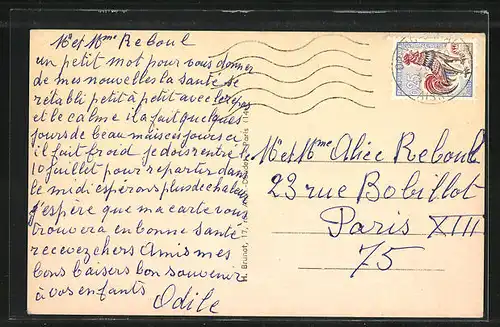 Mr et Mme Reboul
un petit mot pour vous donner
de mes nouvelles la santé se
rétabli petit à petit avec le repos
et le calme il a fait quelques
jours de beau mais ces jours ci
il fait froid je dois rentre le
10 juillet pour repartir dans
le midi espérons plus de chaleur
j'espère que ma carte vous
trouvera en bonne santé
recevez chers Amis mes
bons baisers bon souvenir
à vos enfants
Odile
H. Brunot, 17, Paris
Mr et Mme Alice Reboul
23 rue Bobillot
Paris XIII
75